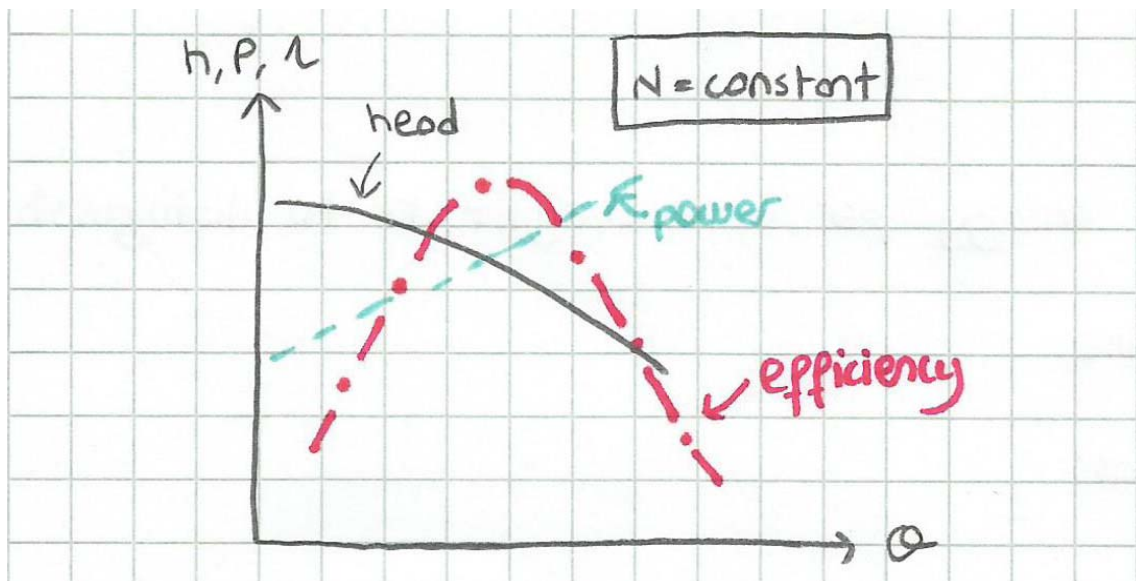 h, P, η
N = constant
head
power
efficiency
Q